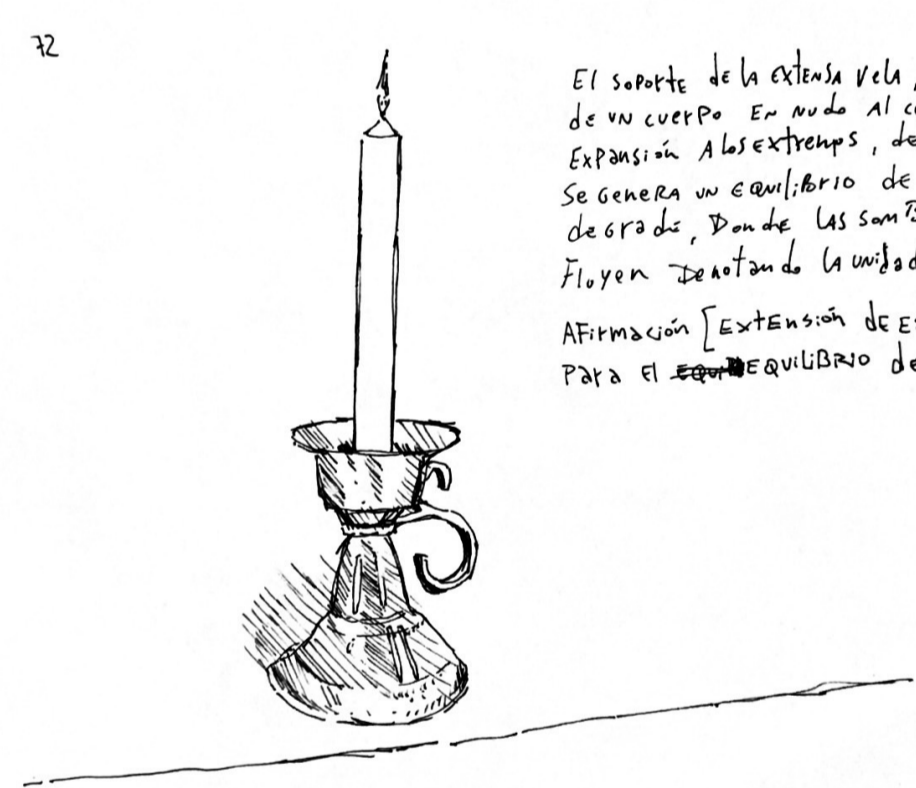 72
El soporte de la extensa vela,
de un cuerpo en nudo al
Expansión a los extremos,
Se genera un equilibrio de
degradé, Donde las
Fluyen Denotando la unidad
Afirmación [Extensión de
Para el equilibrio